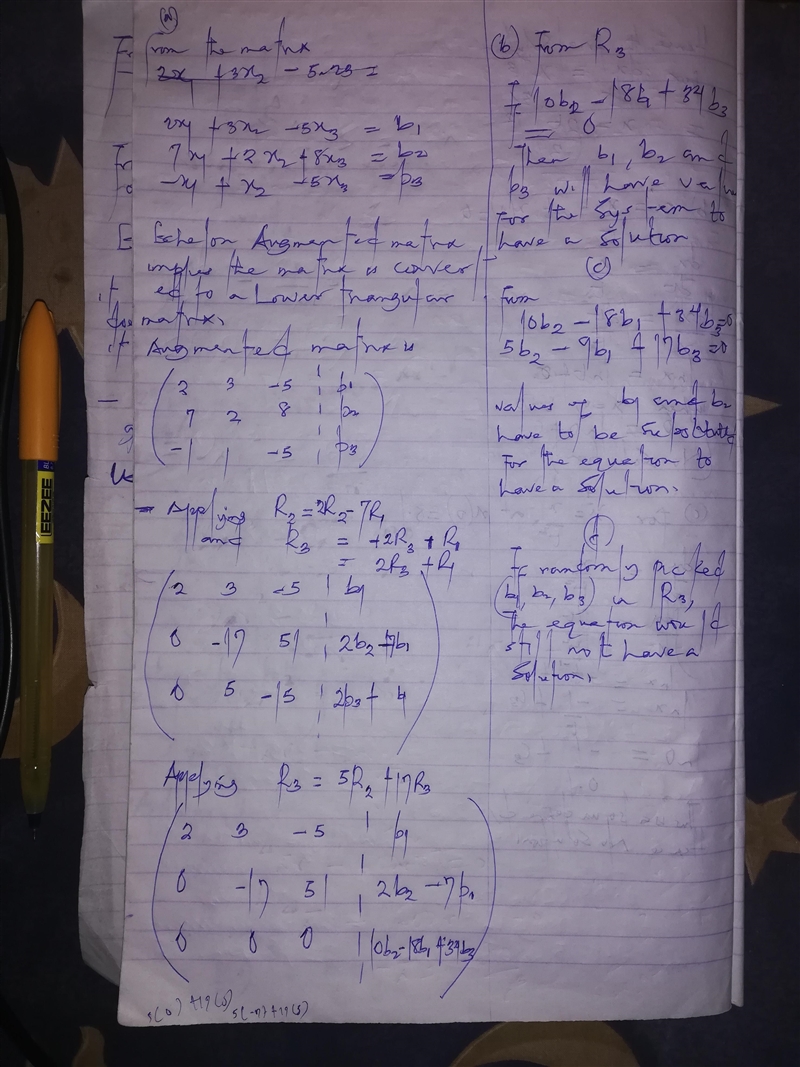 (a)
From the matrix
2x1 + 3x2 - 5x3 =
2x1 + 3x2 - 5x3 = b1
7x1 + 2x2 + 8x3 = b2
-x1 + x2 - 5x3 = b3
Echelon Augmented matrix
implies the matrix is convert
ed to a Lower triangular
matrix.
Augmented matrix is
2 3 -5 | b1
7 2 8 | b2
-1 1 -5 | b3
Applying R2 = 2R2 - 7R1
and R3 = +2R3 + R1
= 2R3 + R1
2 3 -5 | b1
0 -17 51 | 2b2 - 7b1
0 5 -15 | 2b3 + b1
Applying R3 = 5R2 + 17R3
2 3 -5 | b1
0 -17 51 | 2b2 - 7b1
0 0 0 | 10b2 - 18b1 + 34b3
5(-17) + 17(5)
(b) From R3
If 10b2 - 18b1 + 34b3
= 0
Then b1, b2 and
b3 will have value
For the System to
have a Solution
(c)
From
10b2 - 18b1 + 34b3 = 0
5b2 - 9b1 + 17b3 = 0
values of b1 and b2
have to be Substituted
For the equation to
have a Solution.
If randomly picked
(b1, b2, b3) in R3,
The equation would
still not have a
Solution.
EEZEE